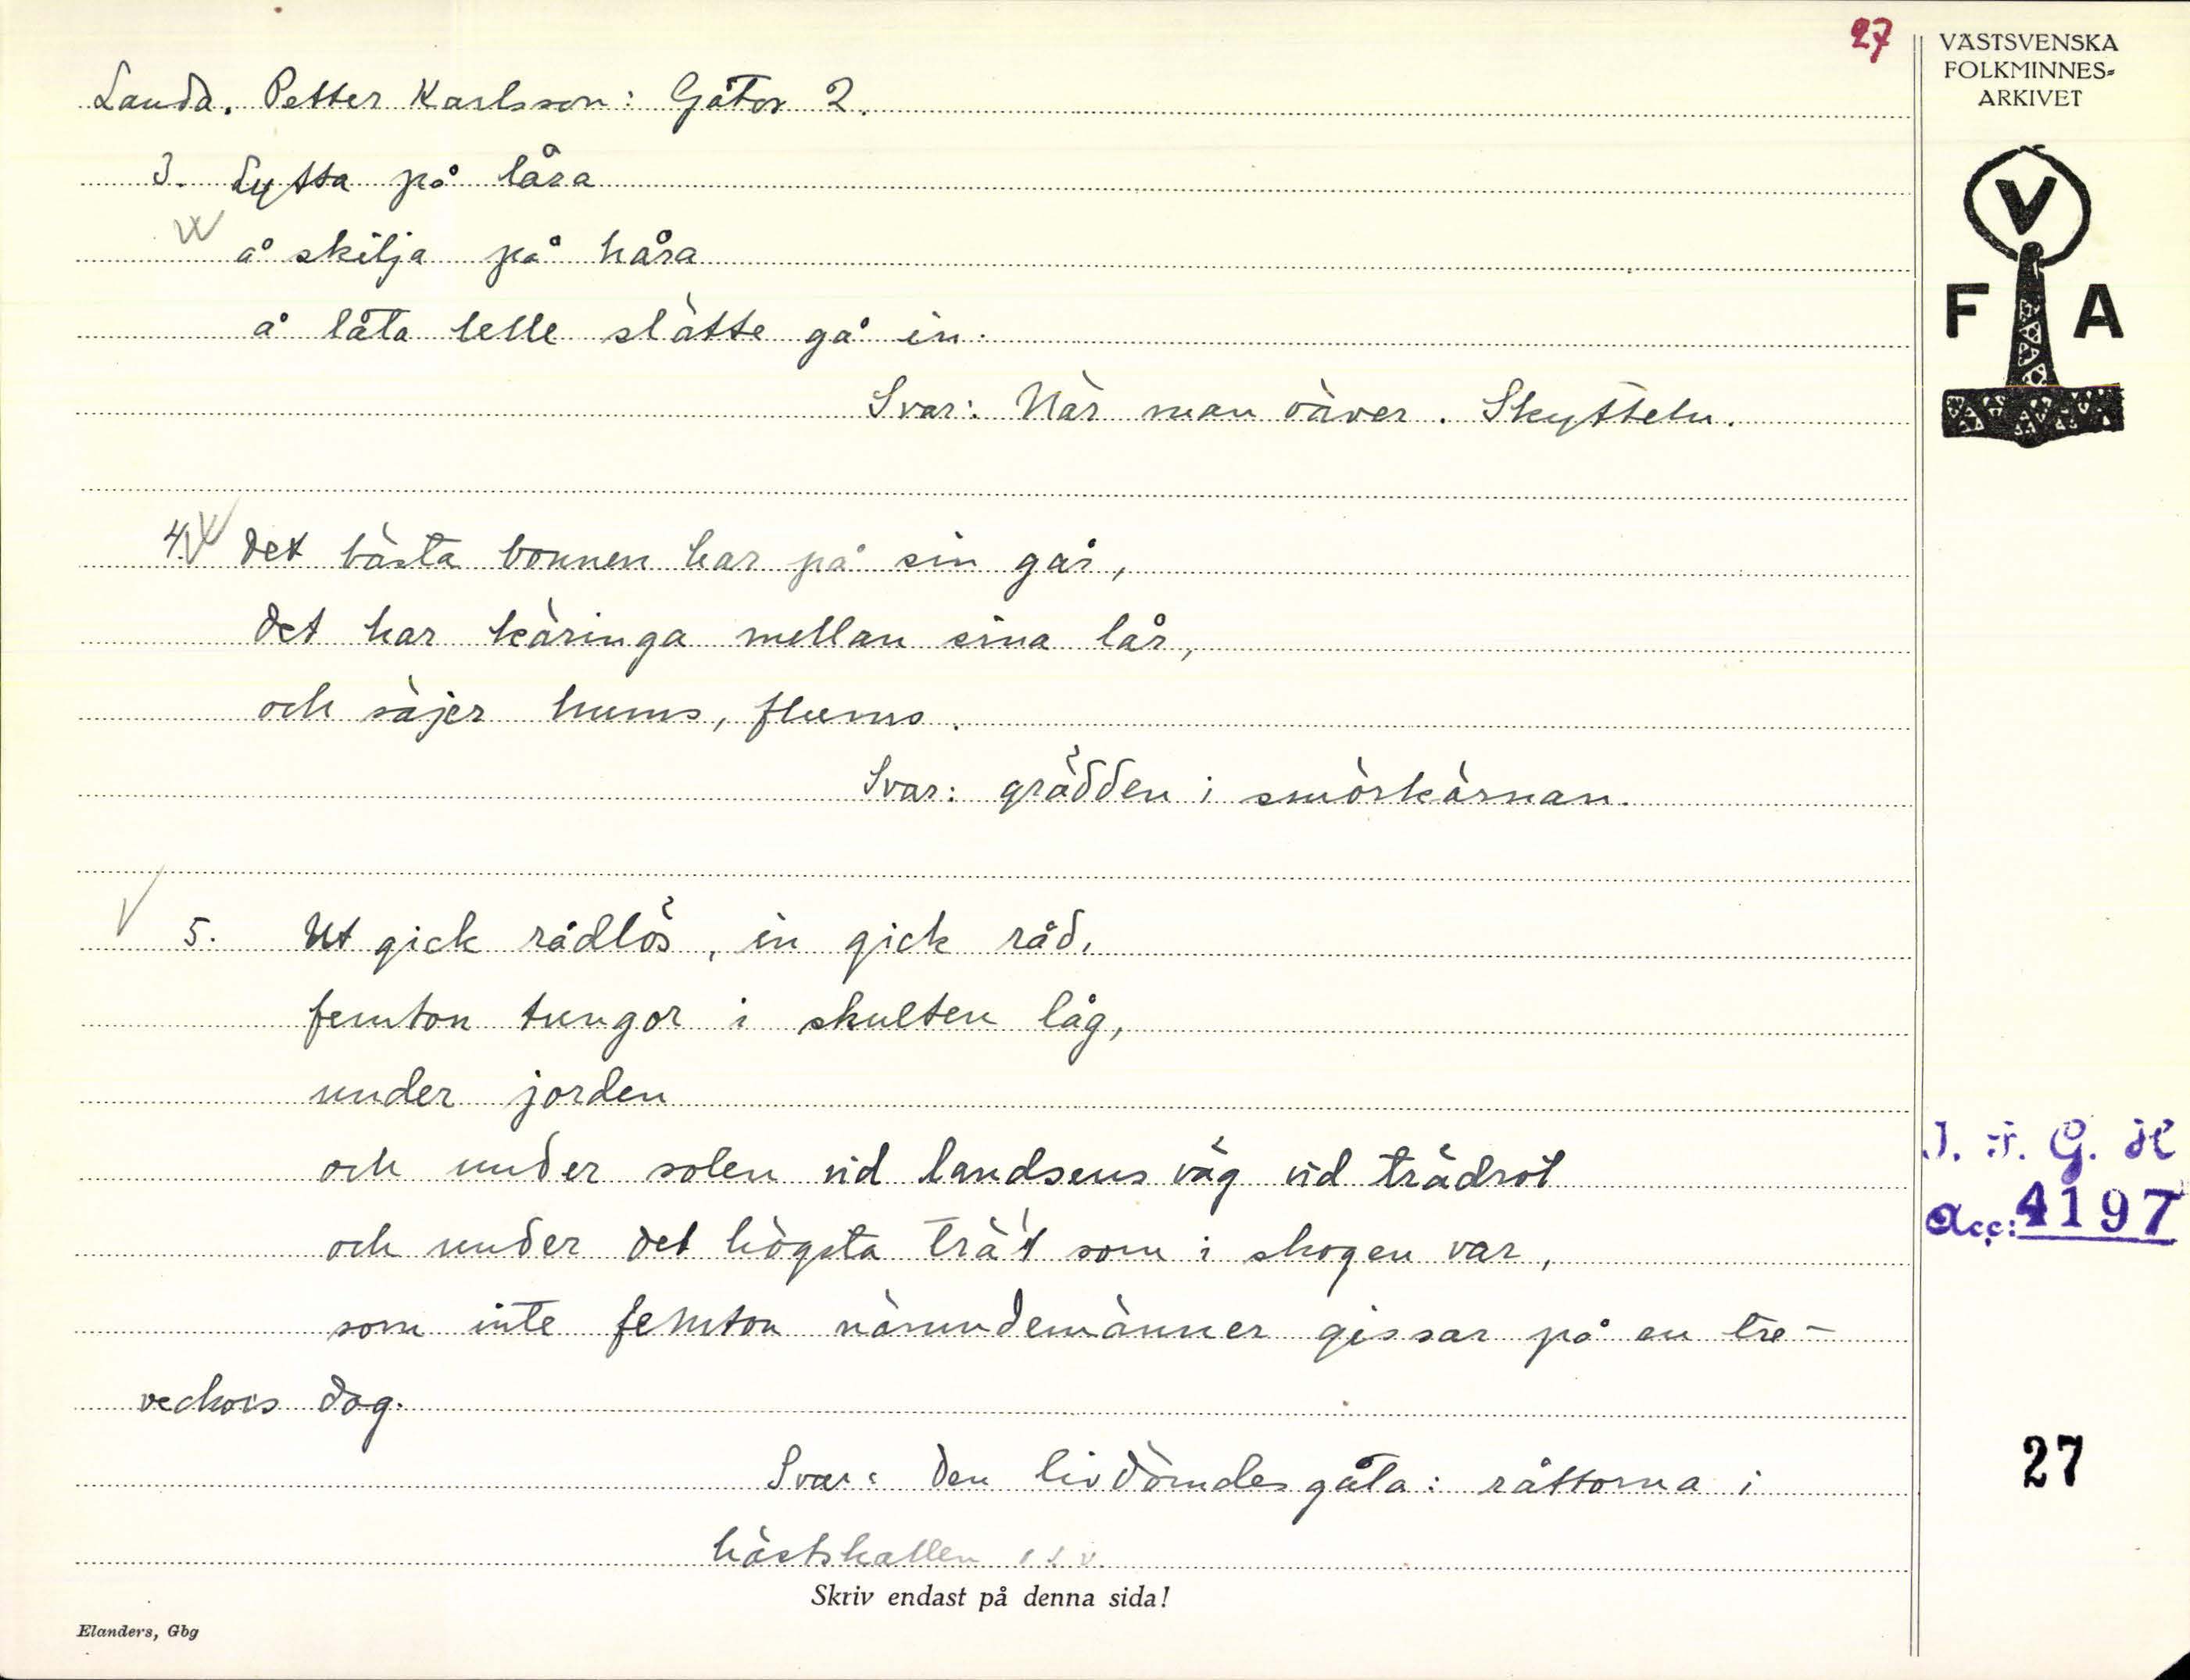 27
Landa. Petter Karlsson: Gåtor 2.
3. Lytta på låra
å skilja på håra
å låta lelle slätte gå in.
Svar: När man väver. Skytteln.
4. Det bästa bonnen har på sin går,
det har käringa mellan sina lår,
och säjer hums, flums.
Svar: grädden i smörkärnan.
5. Ut gick rådlös, in gick råd,
femton tungor i skulten låg,
under jorden
och under solen vid landsens väg vid trädrot
och under det högsta trä't som i skogen var,
som inte femton nämndemänner gissar på en tre-
veckors dag.
Svar: Den livdömdes gåta: råttorna i
hästskallen
Skriv endast på denna sida!
Elanders, Gbg
VÄSTSVENSKA
FOLKMINNES-
ARKIVET
V
F A
I. F. G. H
Acc: 4197
27